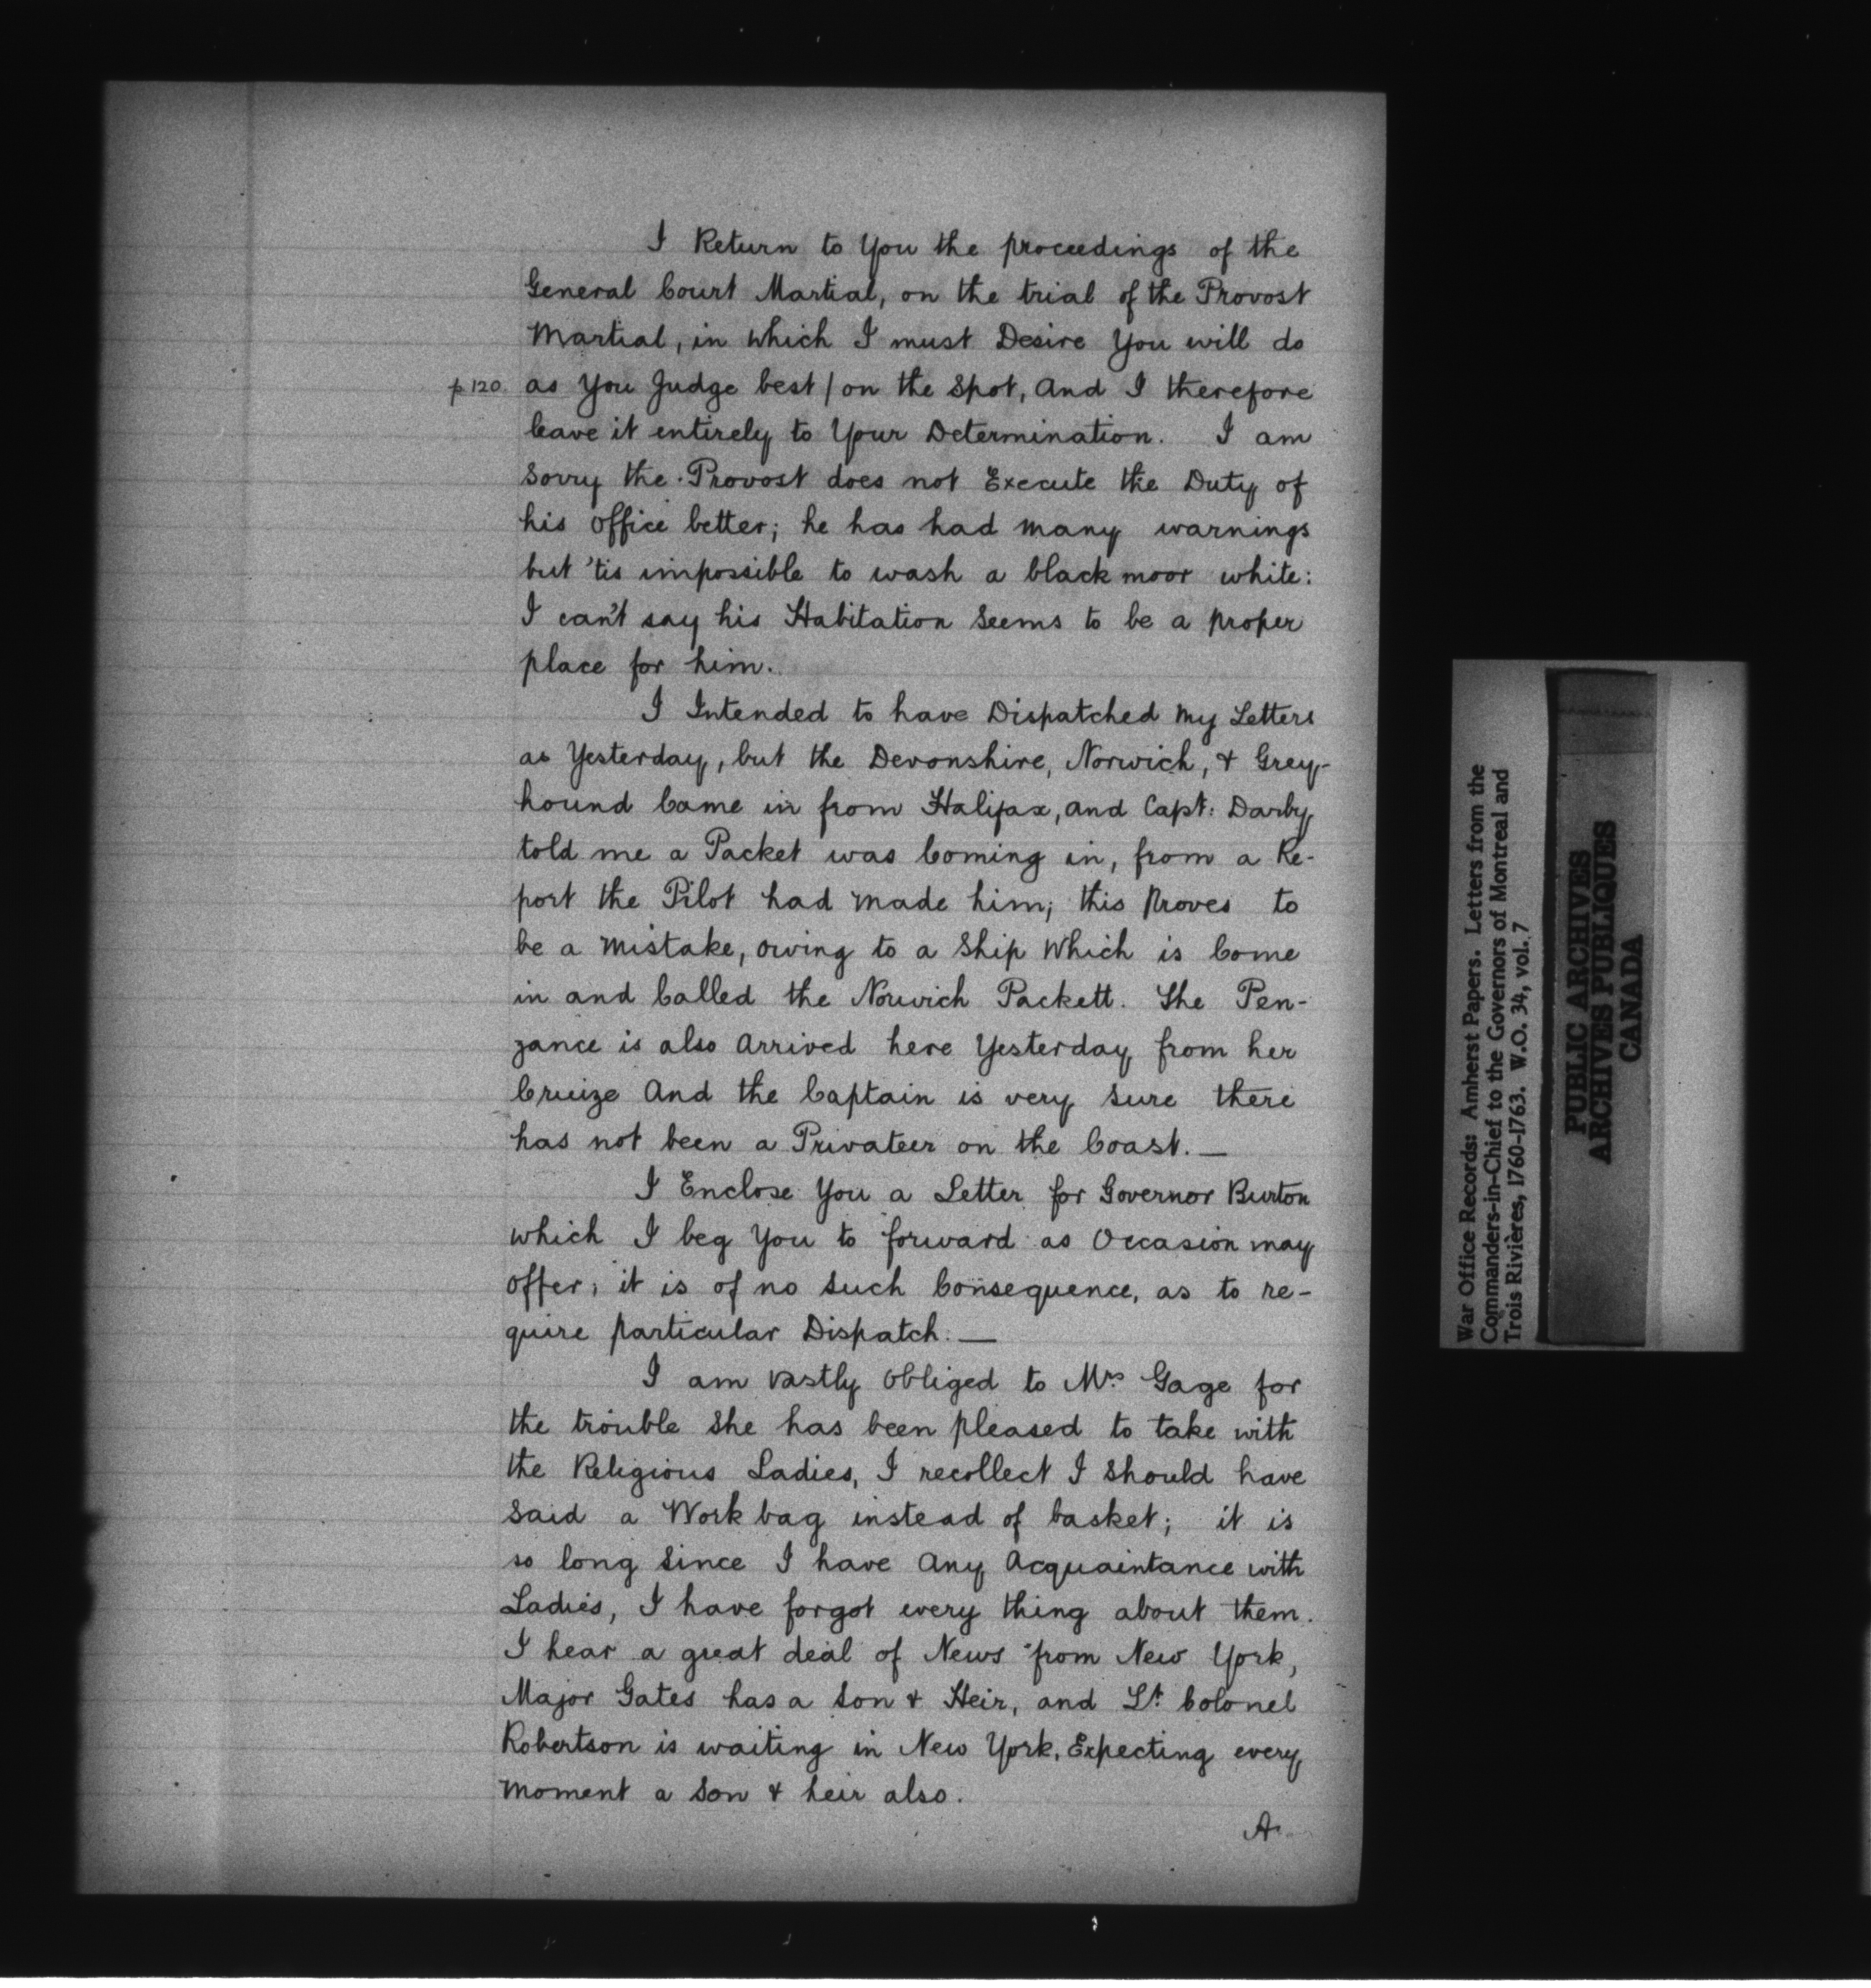 I Return to You the proceedings of the
General Court Martial, on the trial of the Provost
Martial, in which I must Desire You will do
p 120. as You Judge best / on the Spot, and I therefore
leave it entirely to Your Determination. I am
Sorry the Provost does not Execute the Duty of
his Office better; he has had many warnings
but 'tis impossible to wash a black moor white:
I can't say his Habitation Seems to be a proper
place for him.
I Intended to have Dispatched My Letters
as Yesterday, but the Devonshire, Norwich, & Grey-
hound Came in from Halifax, and Capt: Darby
told me a Packet was Coming in, from a Re-
port the Pilot had made him; this Proves to
be a Mistake, owing to a Ship Which is Come
in and Called the Norwich Packett. The Pen-
zance is also Arrived here Yesterday from her
Cruize And the Captain is very Sure there
has not been a Privateer on the Coast. —
I Enclose You a Letter for Governor Burton
which I beg You to forward as Occasion may
offer; it is of no such Consequence, as to re-
quire particular Dispatch. —
I am vastly Obliged to Mrs Gage for
the trouble She has been pleased to take with
the Religious Ladies, I recollect I Should have
Said a Work bag instead of basket; it is
so long Since I have Any Acquaintance with
Ladies, I have forgot every thing about them.
I hear a great deal of News from New York,
Major Gates has a Son & Heir, and Lt. Colonel
Robertson is waiting in New York, Expecting every
Moment a Son & heir also.
A
War Office Records: Amherst Papers. Letters from the
Commanders-in-Chief to the Governors of Montreal and
Trois Rivières, 1760-1763. W.O. 34, vol. 7
PUBLIC ARCHIVES
ARCHIVES PUBLIQUES
CANADA